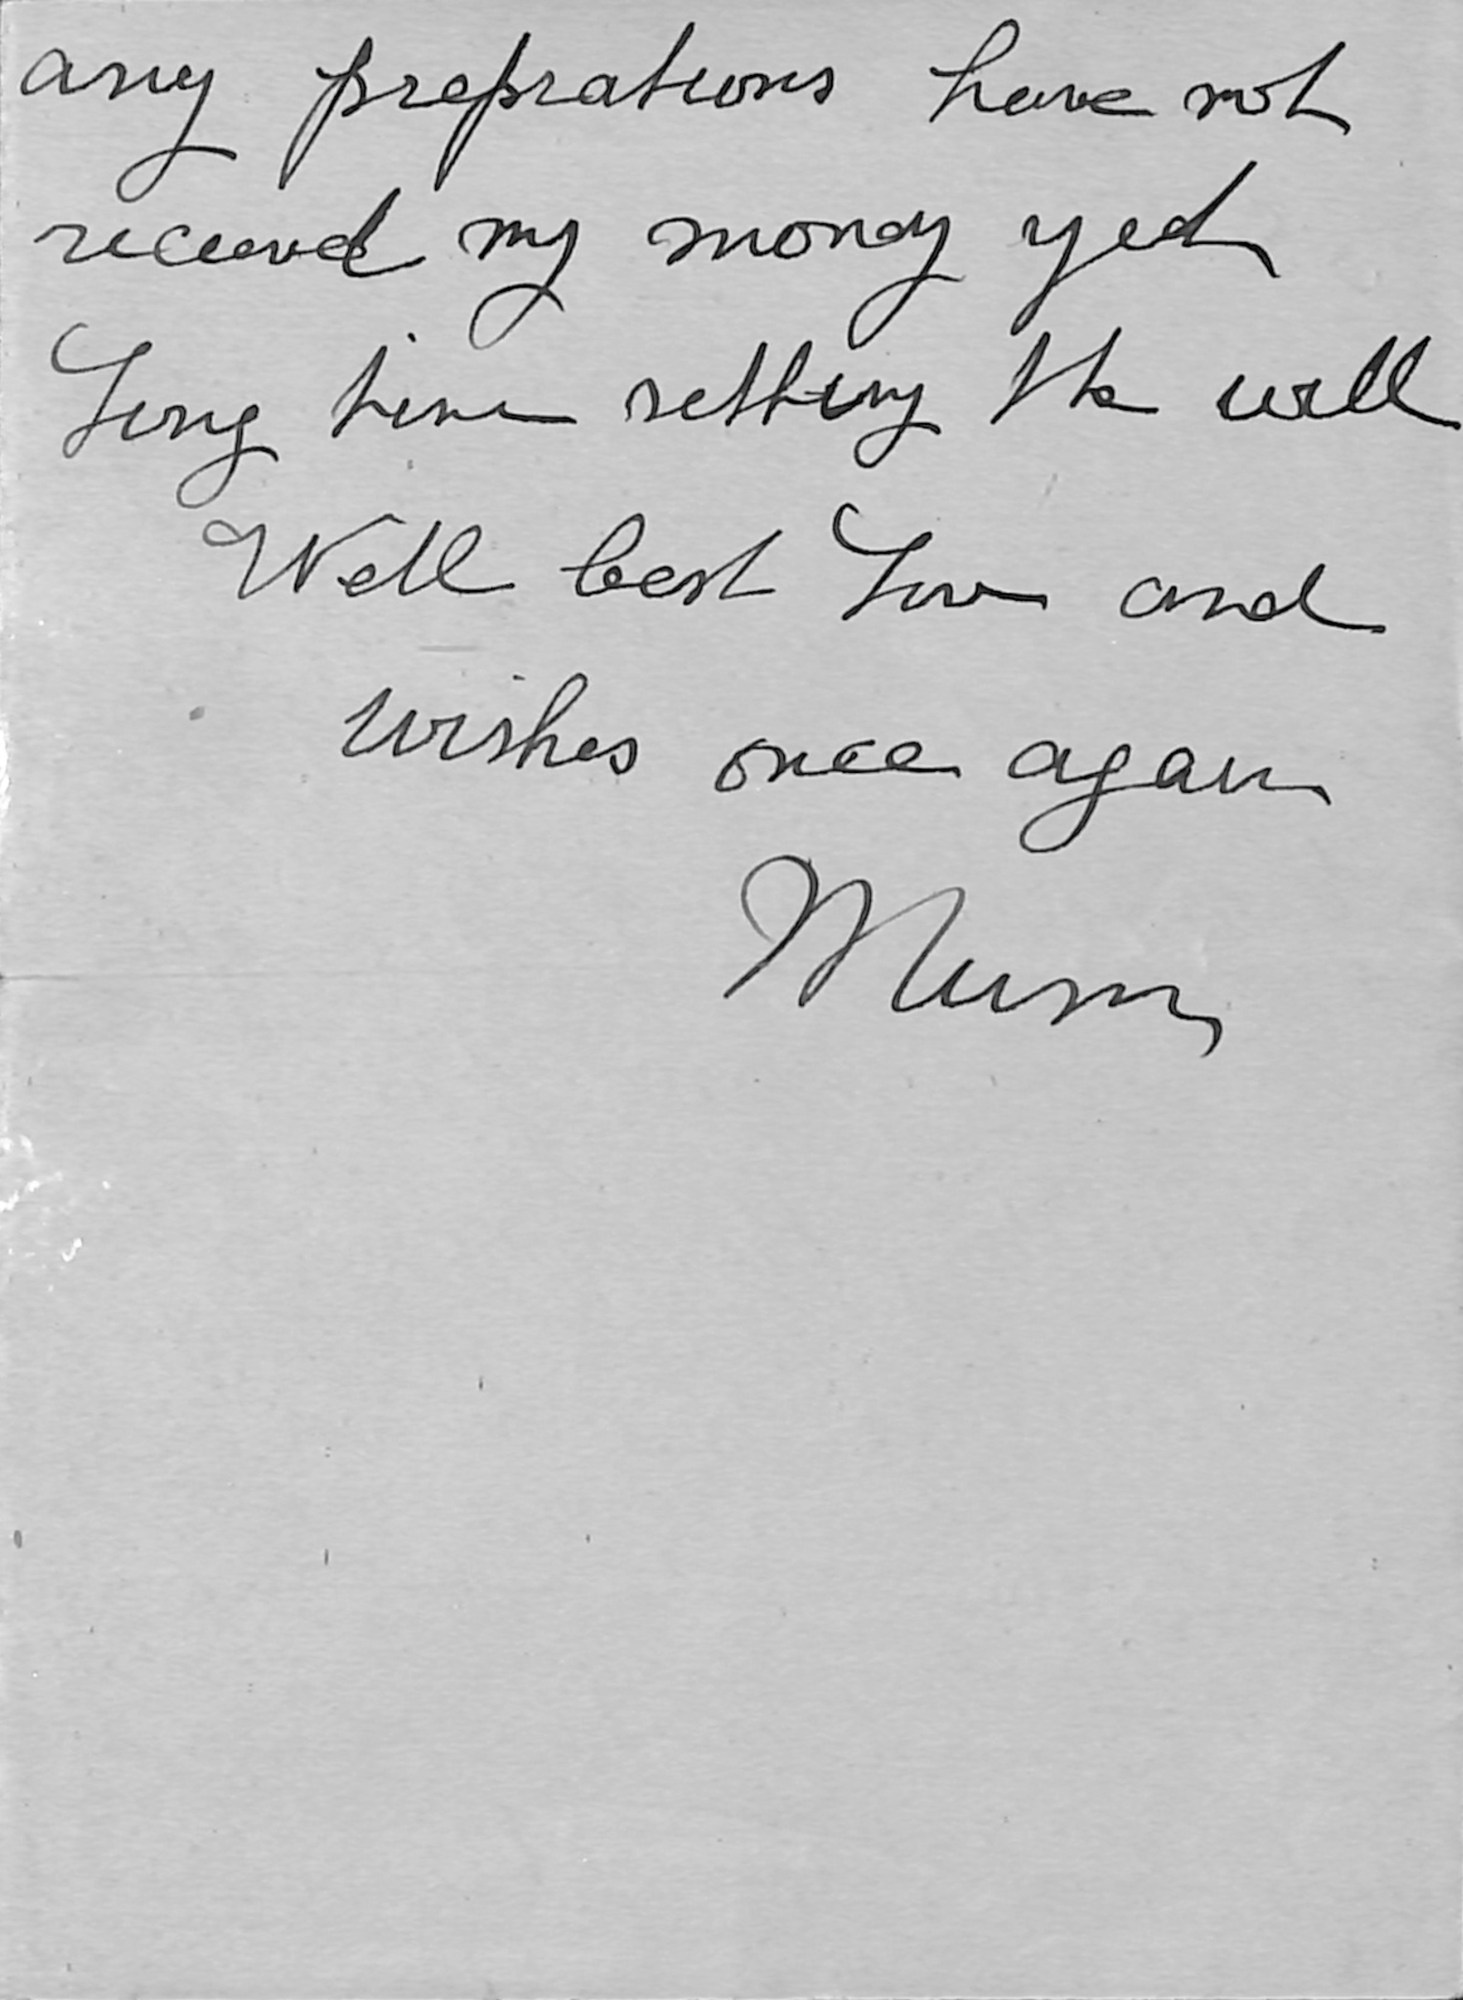 any preprations have not
received my money yet
Long time settling the will
Well best Love and
wishes once again
Mum